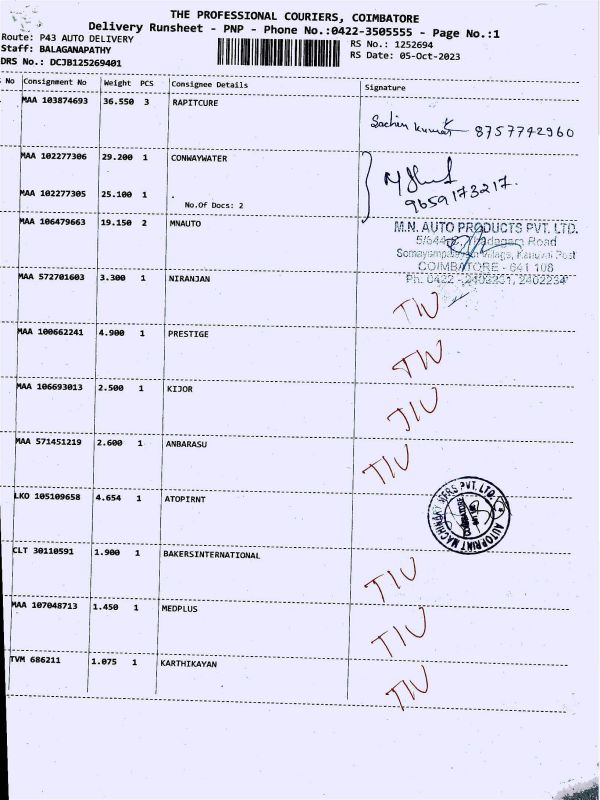 THE PROFESSIONAL COURIERS, COIMBATORE
Delivery Runsheet - PNP - Phone No.:0422-3505555 - Page No.:1
Route: P43 AUTO DELIVERY
RS No.: 1252694
Staff: BALAGANAPATHY
RS Date: 05-Oct-2023
DRS No.: DCJB125269401
No Consignment No Weight PCS Consignee Details Signature
MAA 103874693 36.550 3 RAPITCURE
Sachin kumar 8757742960
MAA 102277306 29.200 1 CONWAYWATER
MAA 102277305 25.100 1 .
9659173217.
No.Of Docs: 2
MAA 106479663 19.150 2 MNAUTO
M.N. AUTO PRODUCTS PVT. LTD.
5/644 Road
COIMBATORE - 641 108
Ph. 0422 - 2402231, 2402234
MAA 572701603 3.300 1 NIRANJAN
TIU
MAA 100662241 4.900 1 PRESTIGE
TIU
MAA 106693013 2.500 1 KIJOR
TIU
MAA 571451219 2.600 1 ANBARASU
TIU
LKO 105109658 4.654 1 ATOPIRNT
AUTOPRINT MACHINARY MFRS PVT. LTD.
COIMBATORE
CLT 30110591 1.900 1 BAKERSINTERNATIONAL
TIU
MAA 107048713 1.450 1 MEDPLUS
TIU
TVM 686211 1.075 1 KARTHIKAYAN
TIU